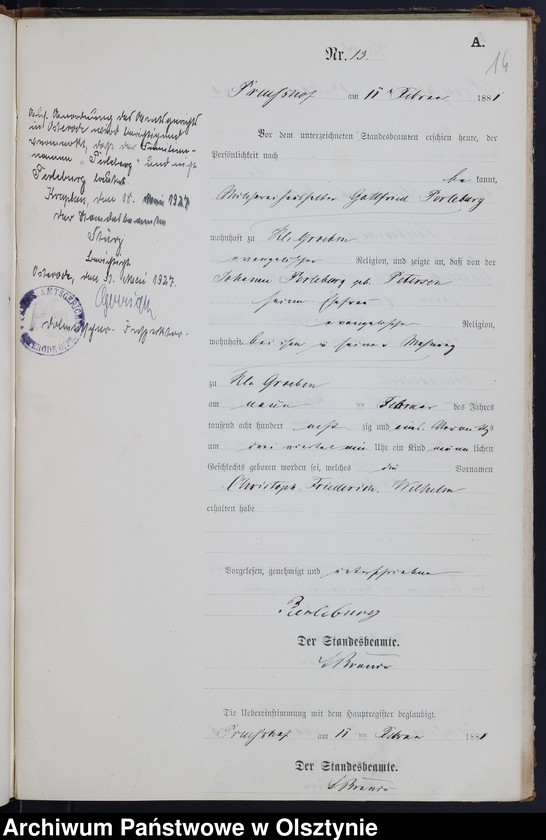 A.
14
Nr. 13.
Preußhof am 11 ten Februar 1881
Vor dem unterzeichneten Standesbeamten erschien heute, der
Persönlichkeit nach
be kannt,
Gottfried Perleburg
wohnhaft zu Kl. Groeben
evangelischer Religion, und zeigte an, daß von der
Johanna Perleburg geb. Petersen
seiner Ehefrau
evangelischer Religion,
wohnhaft bei ihm in seiner Wohnung
zu Kl. Groeben
am neun ten Februar des Jahres
tausend acht hundert acht zig und eins Vormittags
um drei viertel neun Uhr ein Kind männ lichen
Geschlechts geboren worden sei, welches die Vornamen
Christoph, Friederich, Wilhelm
erhalten habe
Vorgelesen, genehmigt und unterschrieben
Perleburg
Der Standesbeamte.
Die Uebereinstimmung mit dem Hauptregister beglaubigt.
Preußhof am 11 ten Februar 1881
Der Standesbeamte.
Auf Anordnung des Amtsgerichts
in Osterode wird berichtigend
vermerkt, daß der Familien-
namen "Perleberg" und nicht
Perleburg lautet.
den 18. Mai 1927
der Standesbeamte
Berichtigt
Osterode, den 31. Mai 1927.
AMTSGERICHT
OSTERODE OSTPR.
Archiwum Państwowe w Olsztynie